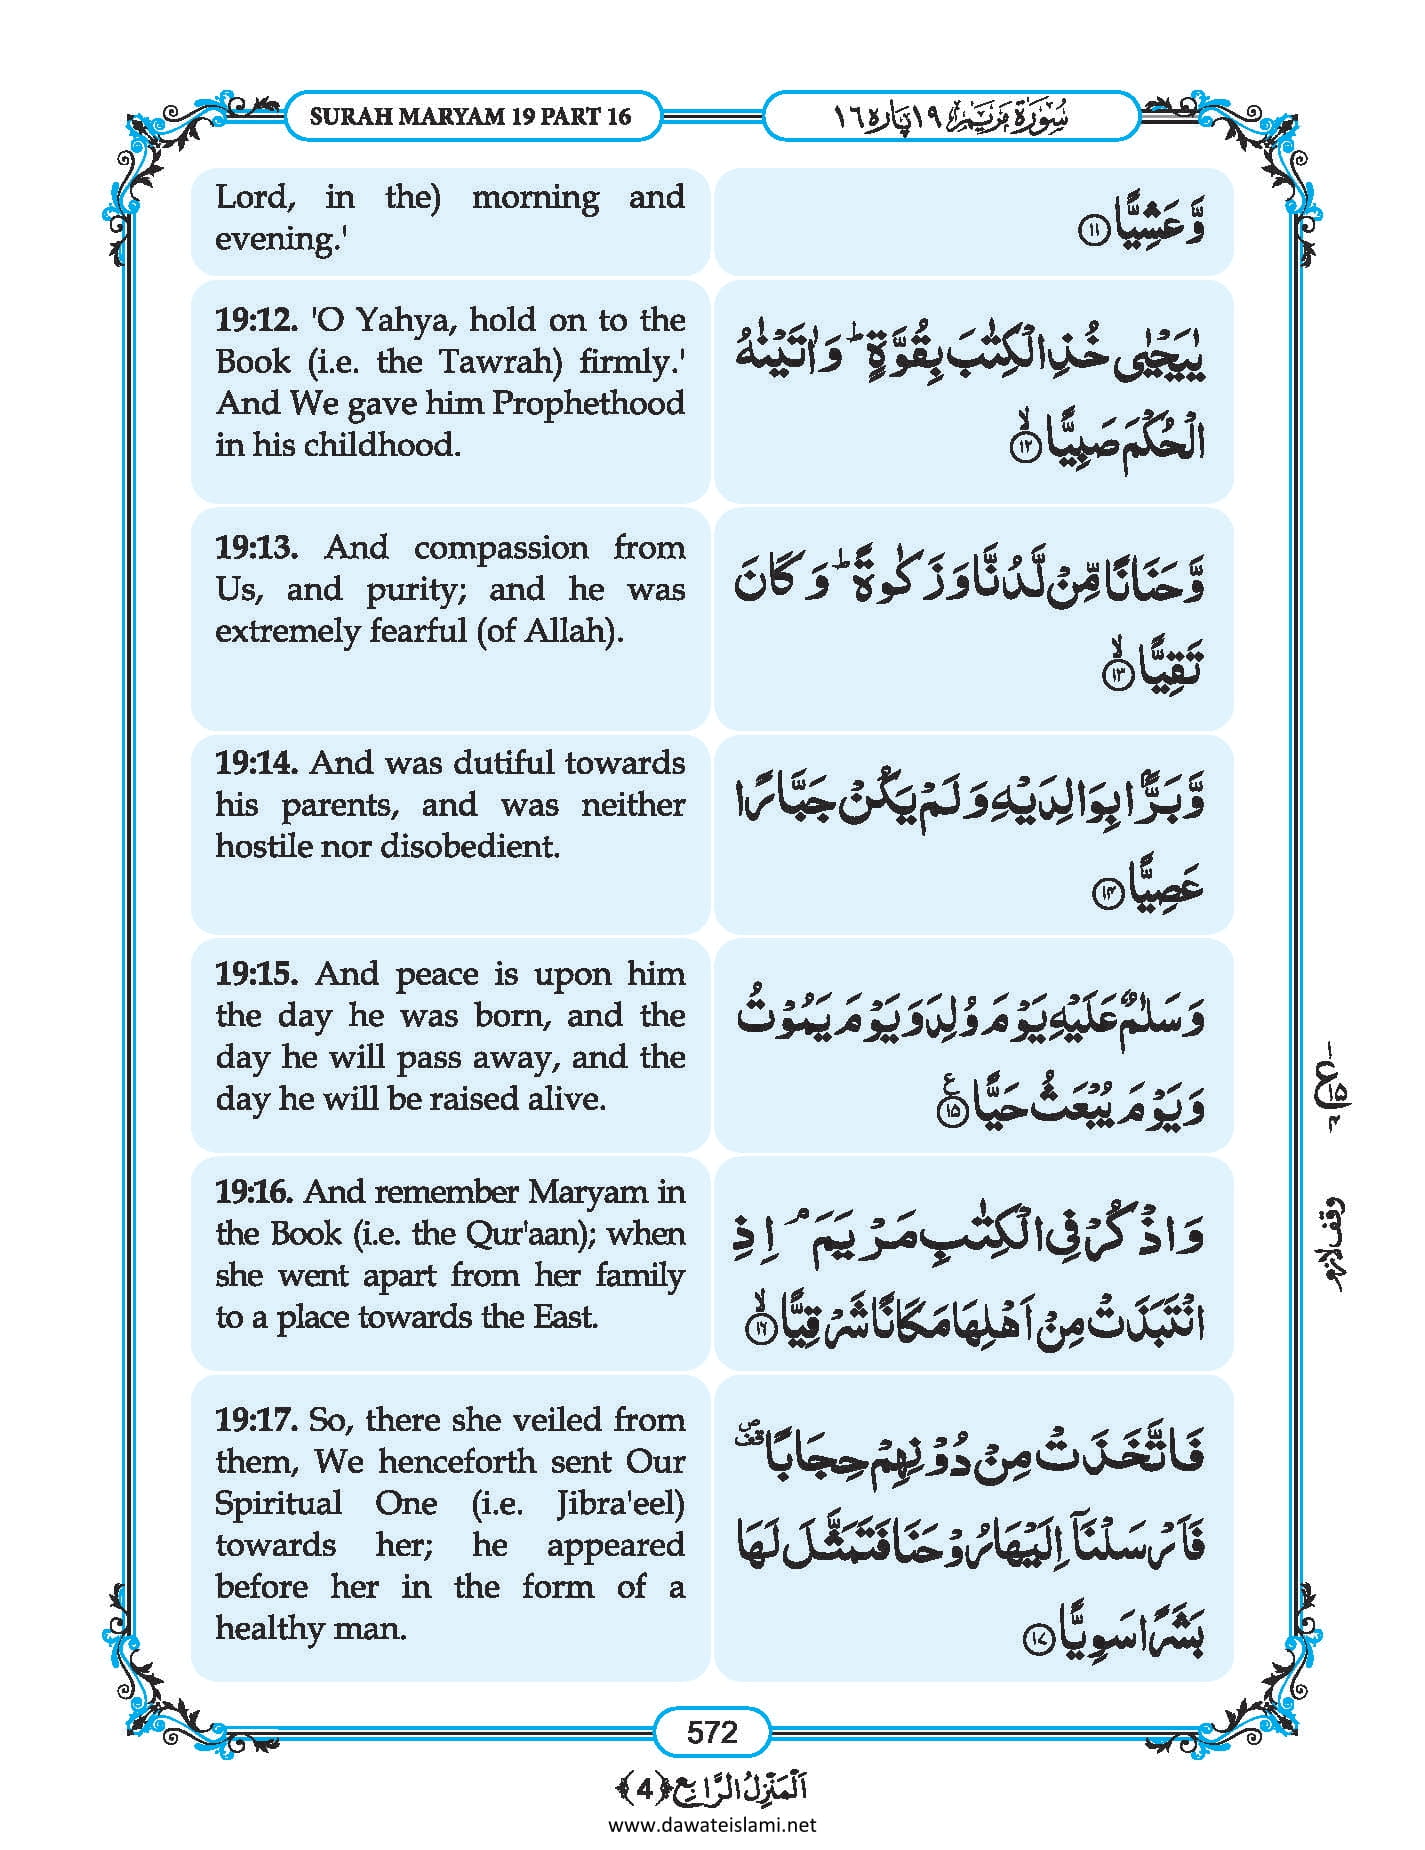 SURAH MARYAM 19 PART 16
سُوْرَۃُ مَرْیَم ١٩ پارہ ١٦
Lord, in the) morning and
evening.'
وَّ عَشِیًّا ﴿۱۱﴾
19:12. 'O Yahya, hold on to the
Book (i.e. the Tawrah) firmly.'
And We gave him Prophethood
in his childhood.
یٰیَحْیٰی خُذِ الْکِتٰبَ بِقُوَّۃٍ ؕ وَ اٰتَیْنٰہُ
الْحُکْمَ صَبِیًّا ﴿ۙ۱۲﴾
19:13. And compassion from
Us, and purity; and he was
extremely fearful (of Allah).
وَّ حَنَانًا مِّنْ لَّدُنَّا وَ زَکٰوۃً ؕ وَ کَانَ
تَقِیًّا ﴿ۙ۱۳﴾
19:14. And was dutiful towards
his parents, and was neither
hostile nor disobedient.
وَّ بَرًّۢا بِوَالِدَیْہِ وَ لَمْ یَکُنْ جَبَّارًا
عَصِیًّا ﴿۱۴﴾
19:15. And peace is upon him
the day he was born, and the
day he will pass away, and the
day he will be raised alive.
وَ سَلٰمٌ عَلَیْہِ یَوْمَ وُلِدَ وَ یَوْمَ یَمُوْتُ
وَ یَوْمَ یُبْعَثُ حَیًّا ﴿٪۱۵﴾
19:16. And remember Maryam in
the Book (i.e. the Qur'aan); when
she went apart from her family
to a place towards the East.
وَ اذْکُرْ فِی الْکِتٰبِ مَرْیَمَ ۘ اِذِ
انْتَبَذَتْ مِنْ اَہْلِہَا مَکَانًا شَرْقِیًّا ﴿ۙ۱۶﴾
19:17. So, there she veiled from
them, We henceforth sent Our
Spiritual One (i.e. Jibra'eel)
towards her; he appeared
before her in the form of a
healthy man.
فَاتَّخَذَتْ مِنْ دُوْنِہِمْ حِجَابًا ۪۟
فَاَرْسَلْنَاۤ اِلَیْہَا رُوْحَنَا فَتَمَثَّلَ لَہَا
بَشَرًا سَوِیًّا ﴿۱۷﴾
ع ۱۵
وقف لازم
572
اَلْمَنْزِلُ الرَّابِع ﴿4﴾
www.dawateislami.net